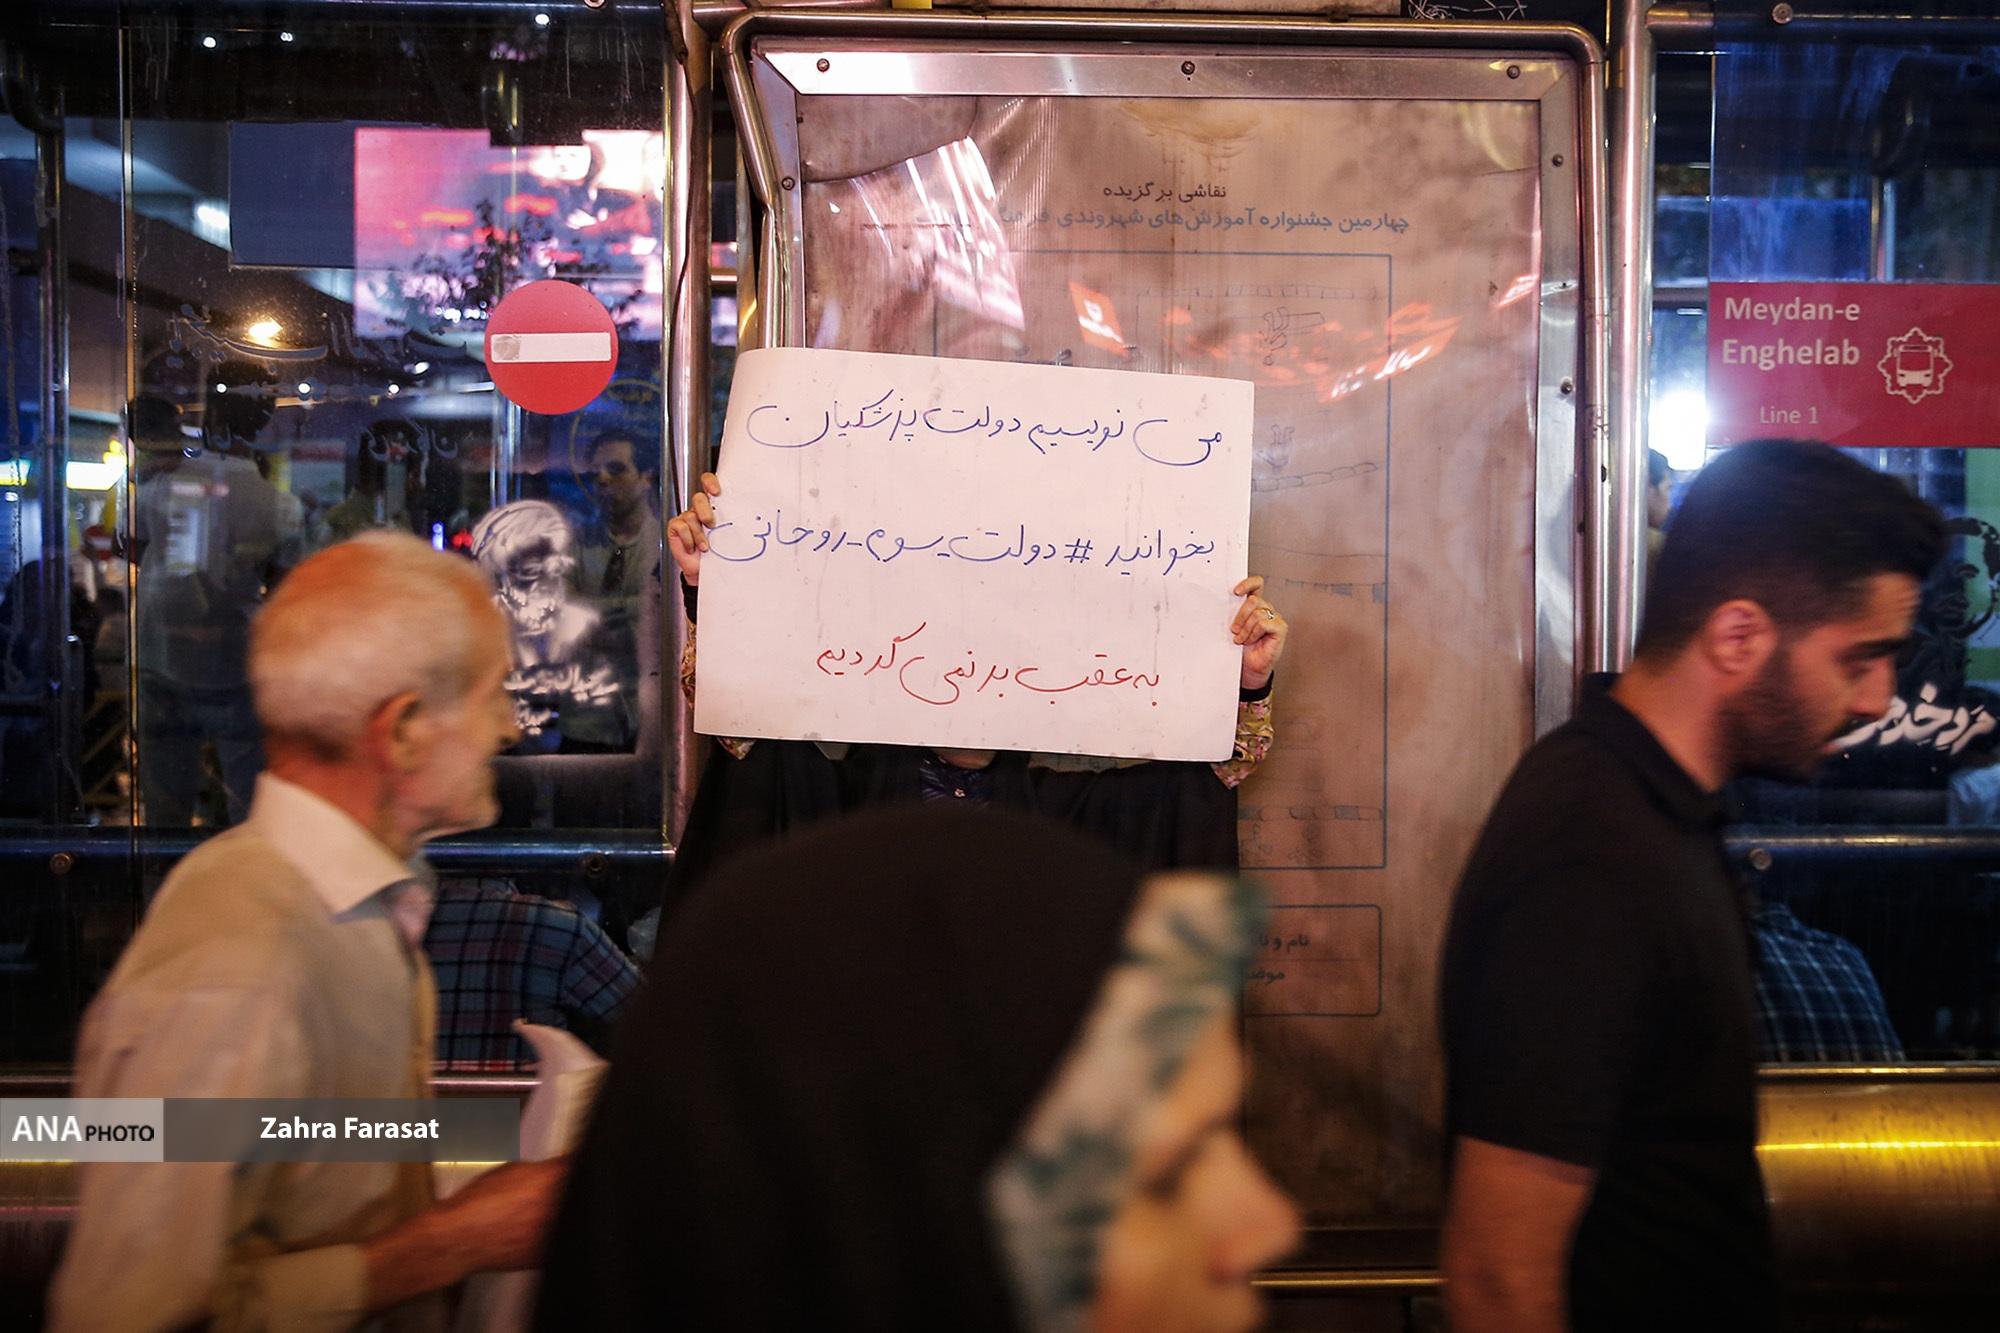 نقاشی برگزیده
چهارمین جشنواره آموزش‌های شهروندی
Meydan-e
Enghelab
Line 1
می نویسیم دولت پزشکیان
بخوانید #دولت_سوم_روحانی
به عقب بر نمی گردیم
نام و
ANA PHOTO
Zahra Farasat